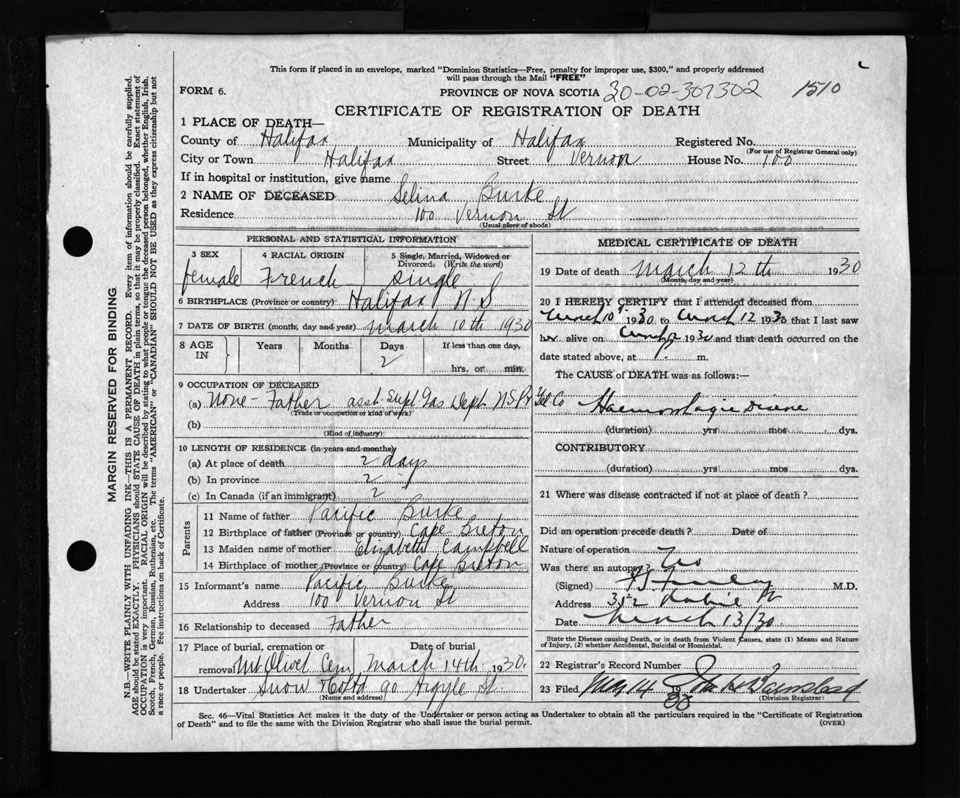 This form if placed in an envelope, marked "Dominion Statistics—Free, penalty for improper use, $300," and properly addressed
will pass through the Mail "FREE"
FORM 6. PROVINCE OF NOVA SCOTIA 30-02-307302 1510
CERTIFICATE OF REGISTRATION OF DEATH
1 PLACE OF DEATH—
County of Halifax Municipality of Halifax Registered No.
(For use of Registrar General only)
City or Town Halifax Street Vernon House No. 100
If in hospital or institution, give name
2 NAME OF DECEASED Selina Burke
Residence 100 Vernon St
(Usual place of abode)
PERSONAL AND STATISTICAL INFORMATION
3 SEX 4 RACIAL ORIGIN 5 Single, Married, Widowed or
Divorced. (Write the word)
female French Single
6 BIRTHPLACE (Province or country) Halifax N.S
7 DATE OF BIRTH (month, day and year) March 10th 1930
8 AGE IN Years Months Days If less than one day,
2 hrs. or min.
9 OCCUPATION OF DECEASED
(a) None - Father asst. Supt Gas Dept. N.S.
(Trade or occupation or kind of work)
(b)
(Kind of industry)
10 LENGTH OF RESIDENCE (in years and months)
(a) At place of death 2 days
(b) In province 2
(c) In Canada (if an immigrant) 2
Parents
11 Name of father Pacific Burke
12 Birthplace of father (Province or country) Cape Breton
13 Maiden name of mother Elizabeth Campbell
14 Birthplace of mother (Province or country) Cape Breton
15 Informant's name Pacific Burke
Address 100 Vernon St
16 Relationship to deceased Father
17 Place of burial, cremation or Date of burial
removal Mt Olivet Cem March 14th 1930.
18 Undertaker Snow 90 Argyle St
(Name and address)
MEDICAL CERTIFICATE OF DEATH
19 Date of death March 12th 1930
(Month, day and year)
20 I HEREBY CERTIFY that I attended deceased from
March 10 1930 to March 12 1930 that I last saw
her alive on 1930 and that death occurred on the
date stated above, at m.
The CAUSE of DEATH was as follows:—
Haemorrhagic Disease
(duration) yrs mos dys.
CONTRIBUTORY
(duration) yrs mos dys.
21 Where was disease contracted if not at place of death?
Did an operation precede death? Date of
Nature of operation
Was there an autopsy? Yes
(Signed) M.D.
Address 352 Robie St
Date March 13/30
State the Disease causing Death, or in death from Violent Causes, state (1) Means and Nature
of Injury, (2) whether Accidental, Suicidal or Homicidal.
22 Registrar's Record Number
23 Filed 14 19
(Division Registrar)
Sec. 46—Vital Statistics Act makes it the duty of the Undertaker or person acting as Undertaker to obtain all the particulars required in the "Certificate of Registration
of Death" and to file the same with the Division Registrar who shall issue the burial permit. (OVER)
MARGIN RESERVED FOR BINDING
N.B.—WRITE PLAINLY WITH UNFADING INK—THIS IS A PERMANENT RECORD. Every item of information should be carefully supplied.
AGE should be stated EXACTLY. PHYSICIANS should STATE CAUSE OF DEATH in plain terms, so that it may be properly classified. Exact statement of
OCCUPATION is very important. RACIAL ORIGIN will be described by stating to what people or tongue the deceased person belonged, whether English, Irish,
Scotch, French, German, Russian, Ruthenian, etc. The terms "AMERICAN" or "CANADIAN" SHOULD NOT BE USED as they express citizenship but not
a race or people. See instructions on back of Certificate.